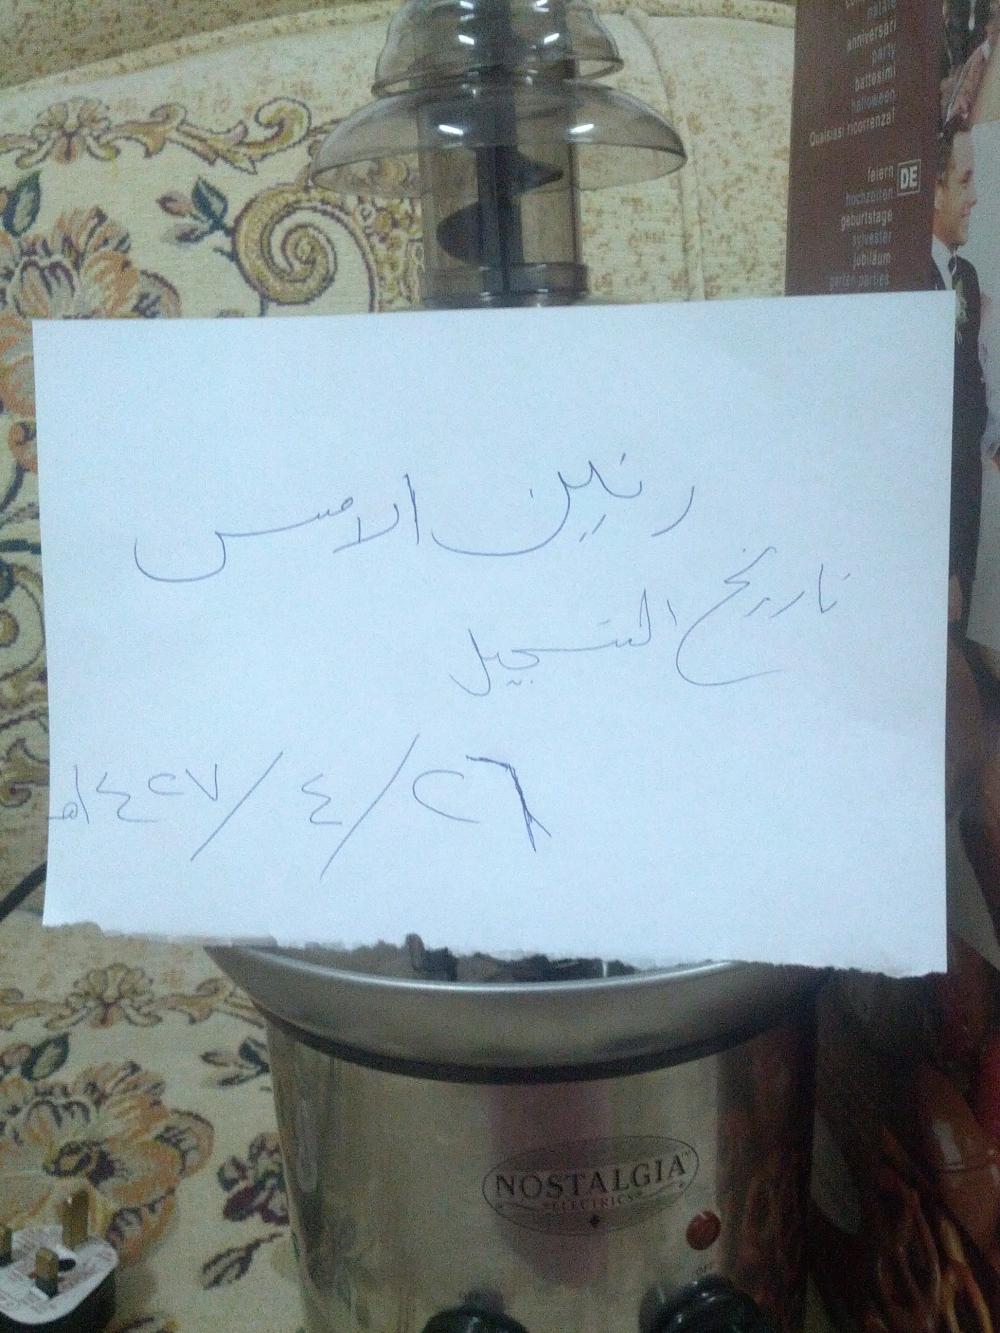 natale
anniversari
party
battesimi
halloween
Qualsiasi ricorrenza!
feiern DE
hochzeiten
geburtstage
sylvester
jubiläum
garten parties
رنين الامس
تاريخ التسجيل
٢٦/٤/١٤٢٧هـ
NOSTALGIA
ELECTRICS